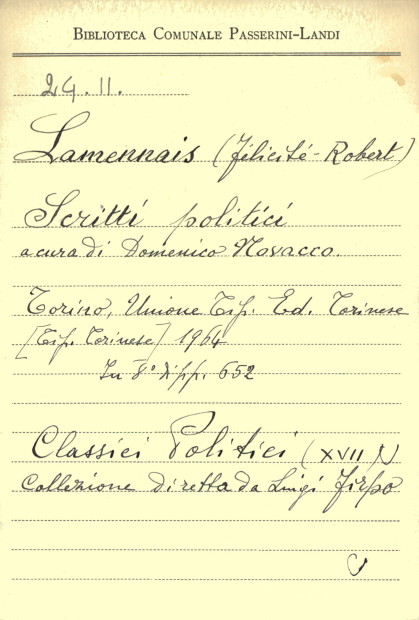 BIBLIOTECA COMUNALE PASSERINI-LANDI
2G.11.
Lamennais (Félicité-Robert)
Scritti politici
a cura di Domenico Novacco.
Torino, Unione Tip. Ed. Torinese
[Tip. Torinese] 1964
In 8° di pp. 652
Classici Politici (XVII)
Collezione diretta da Luigi Firpo